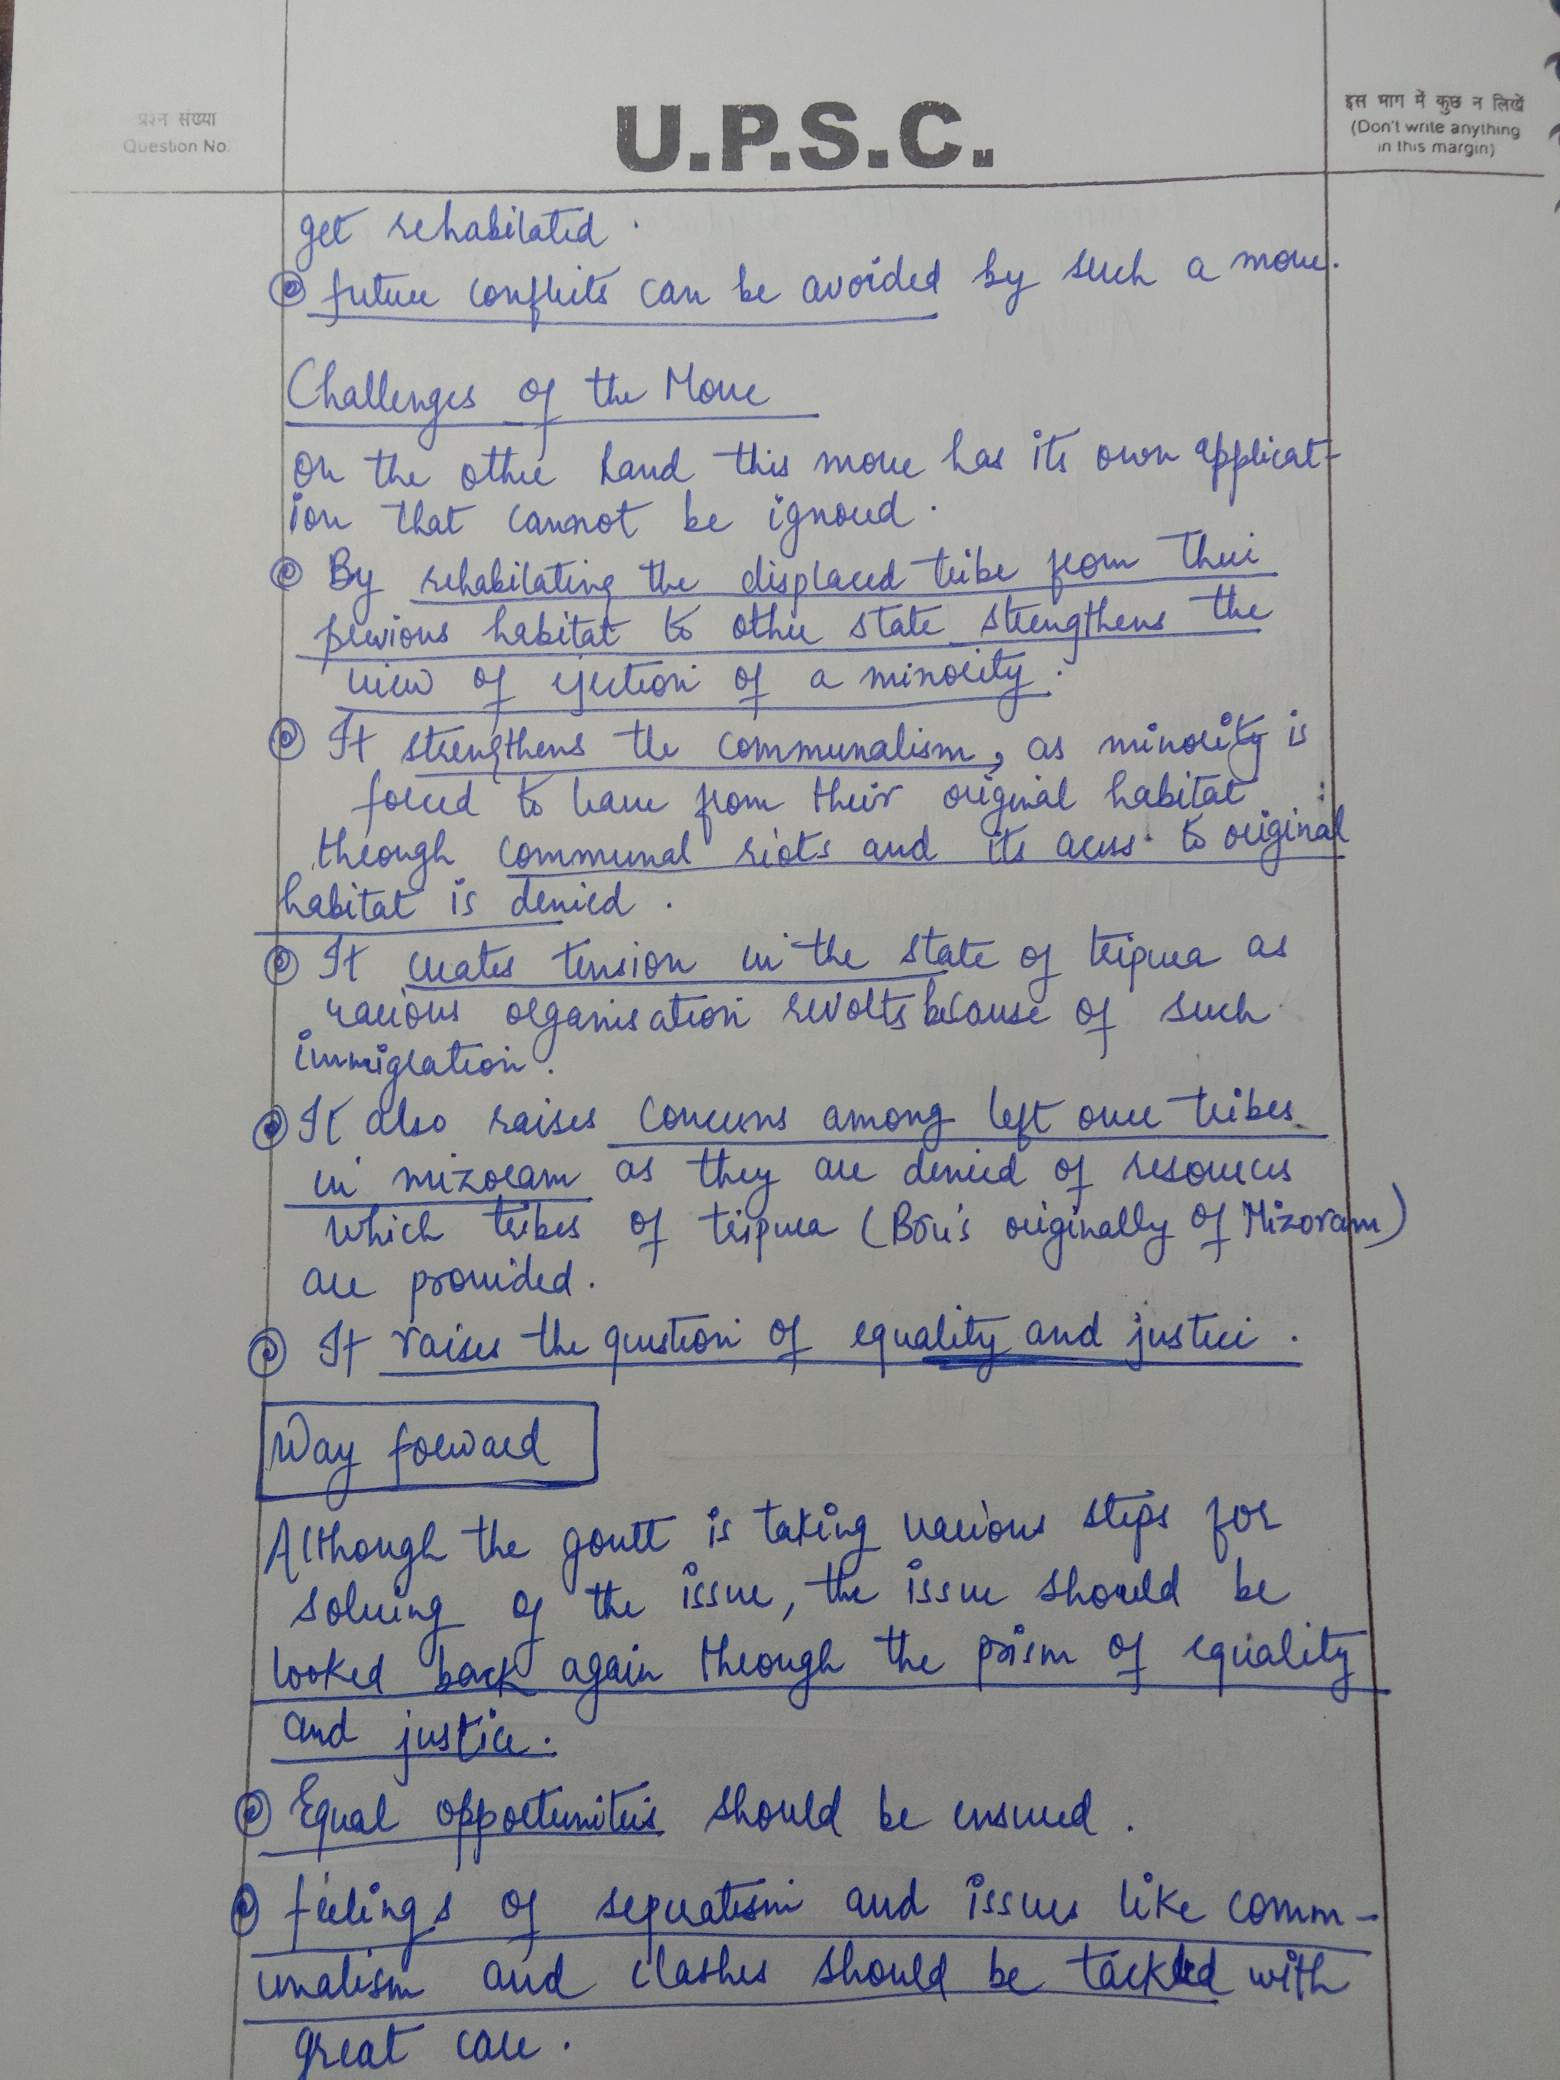 प्रश्न संख्या
Question No.
U.P.S.C.
इस भाग में कुछ न लिखें
(Don't write anything
in this margin)
get rehabilated.
future conflicts can be avoided by such a move.
Challenges of the Move
On the other hand this move has its own applicat-
ion that cannot be ignored.
By rehabilating the displaced tribe from their
previous habitat to other state strengthens the
view of ejection of a minority.
It strengthens the communalism, as minority is
forced to leave from their original habitat
through communal riots and its access to original
habitat is denied.
It creates tension in the state of tripura as
various organisation revolts because of such
immigration.
It also raises concerns among left over tribes
in mizoram as they are denied of resources
which tribes of tripura (Bru's originally of Mizoram)
are provided.
It raises the question of equality and justice.
Way forward
Although the govtt is taking various steps for
solving of the issue, the issue should be
looked back again through the prism of equality
and justice.
Equal opportunities should be ensured.
feelings of sepratism and issues like comm-
unalism and clashes should be tackled with
great care.